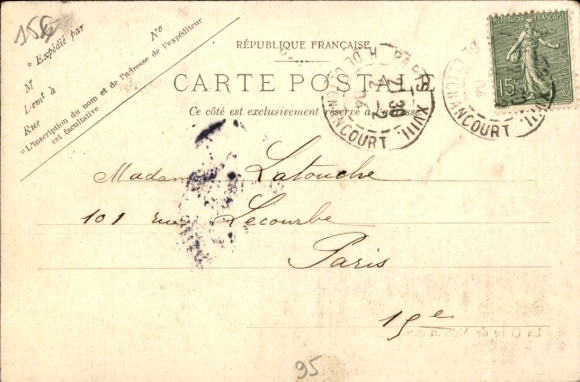 156
* Expédié par
No
M
Demt à
Rue
* L'inscription du nom et de l'adresse de l'expéditeur
est facultative.
RÉPUBLIQUE FRANÇAISE
CARTE POSTALE
Ce côté est exclusivement réservé à l'adresse
RÉPUBLIQUE FRANÇAISE
15c
PARIS XVIII
30
Madame Latouche
101 rue Lecourbe
Paris
15e
95